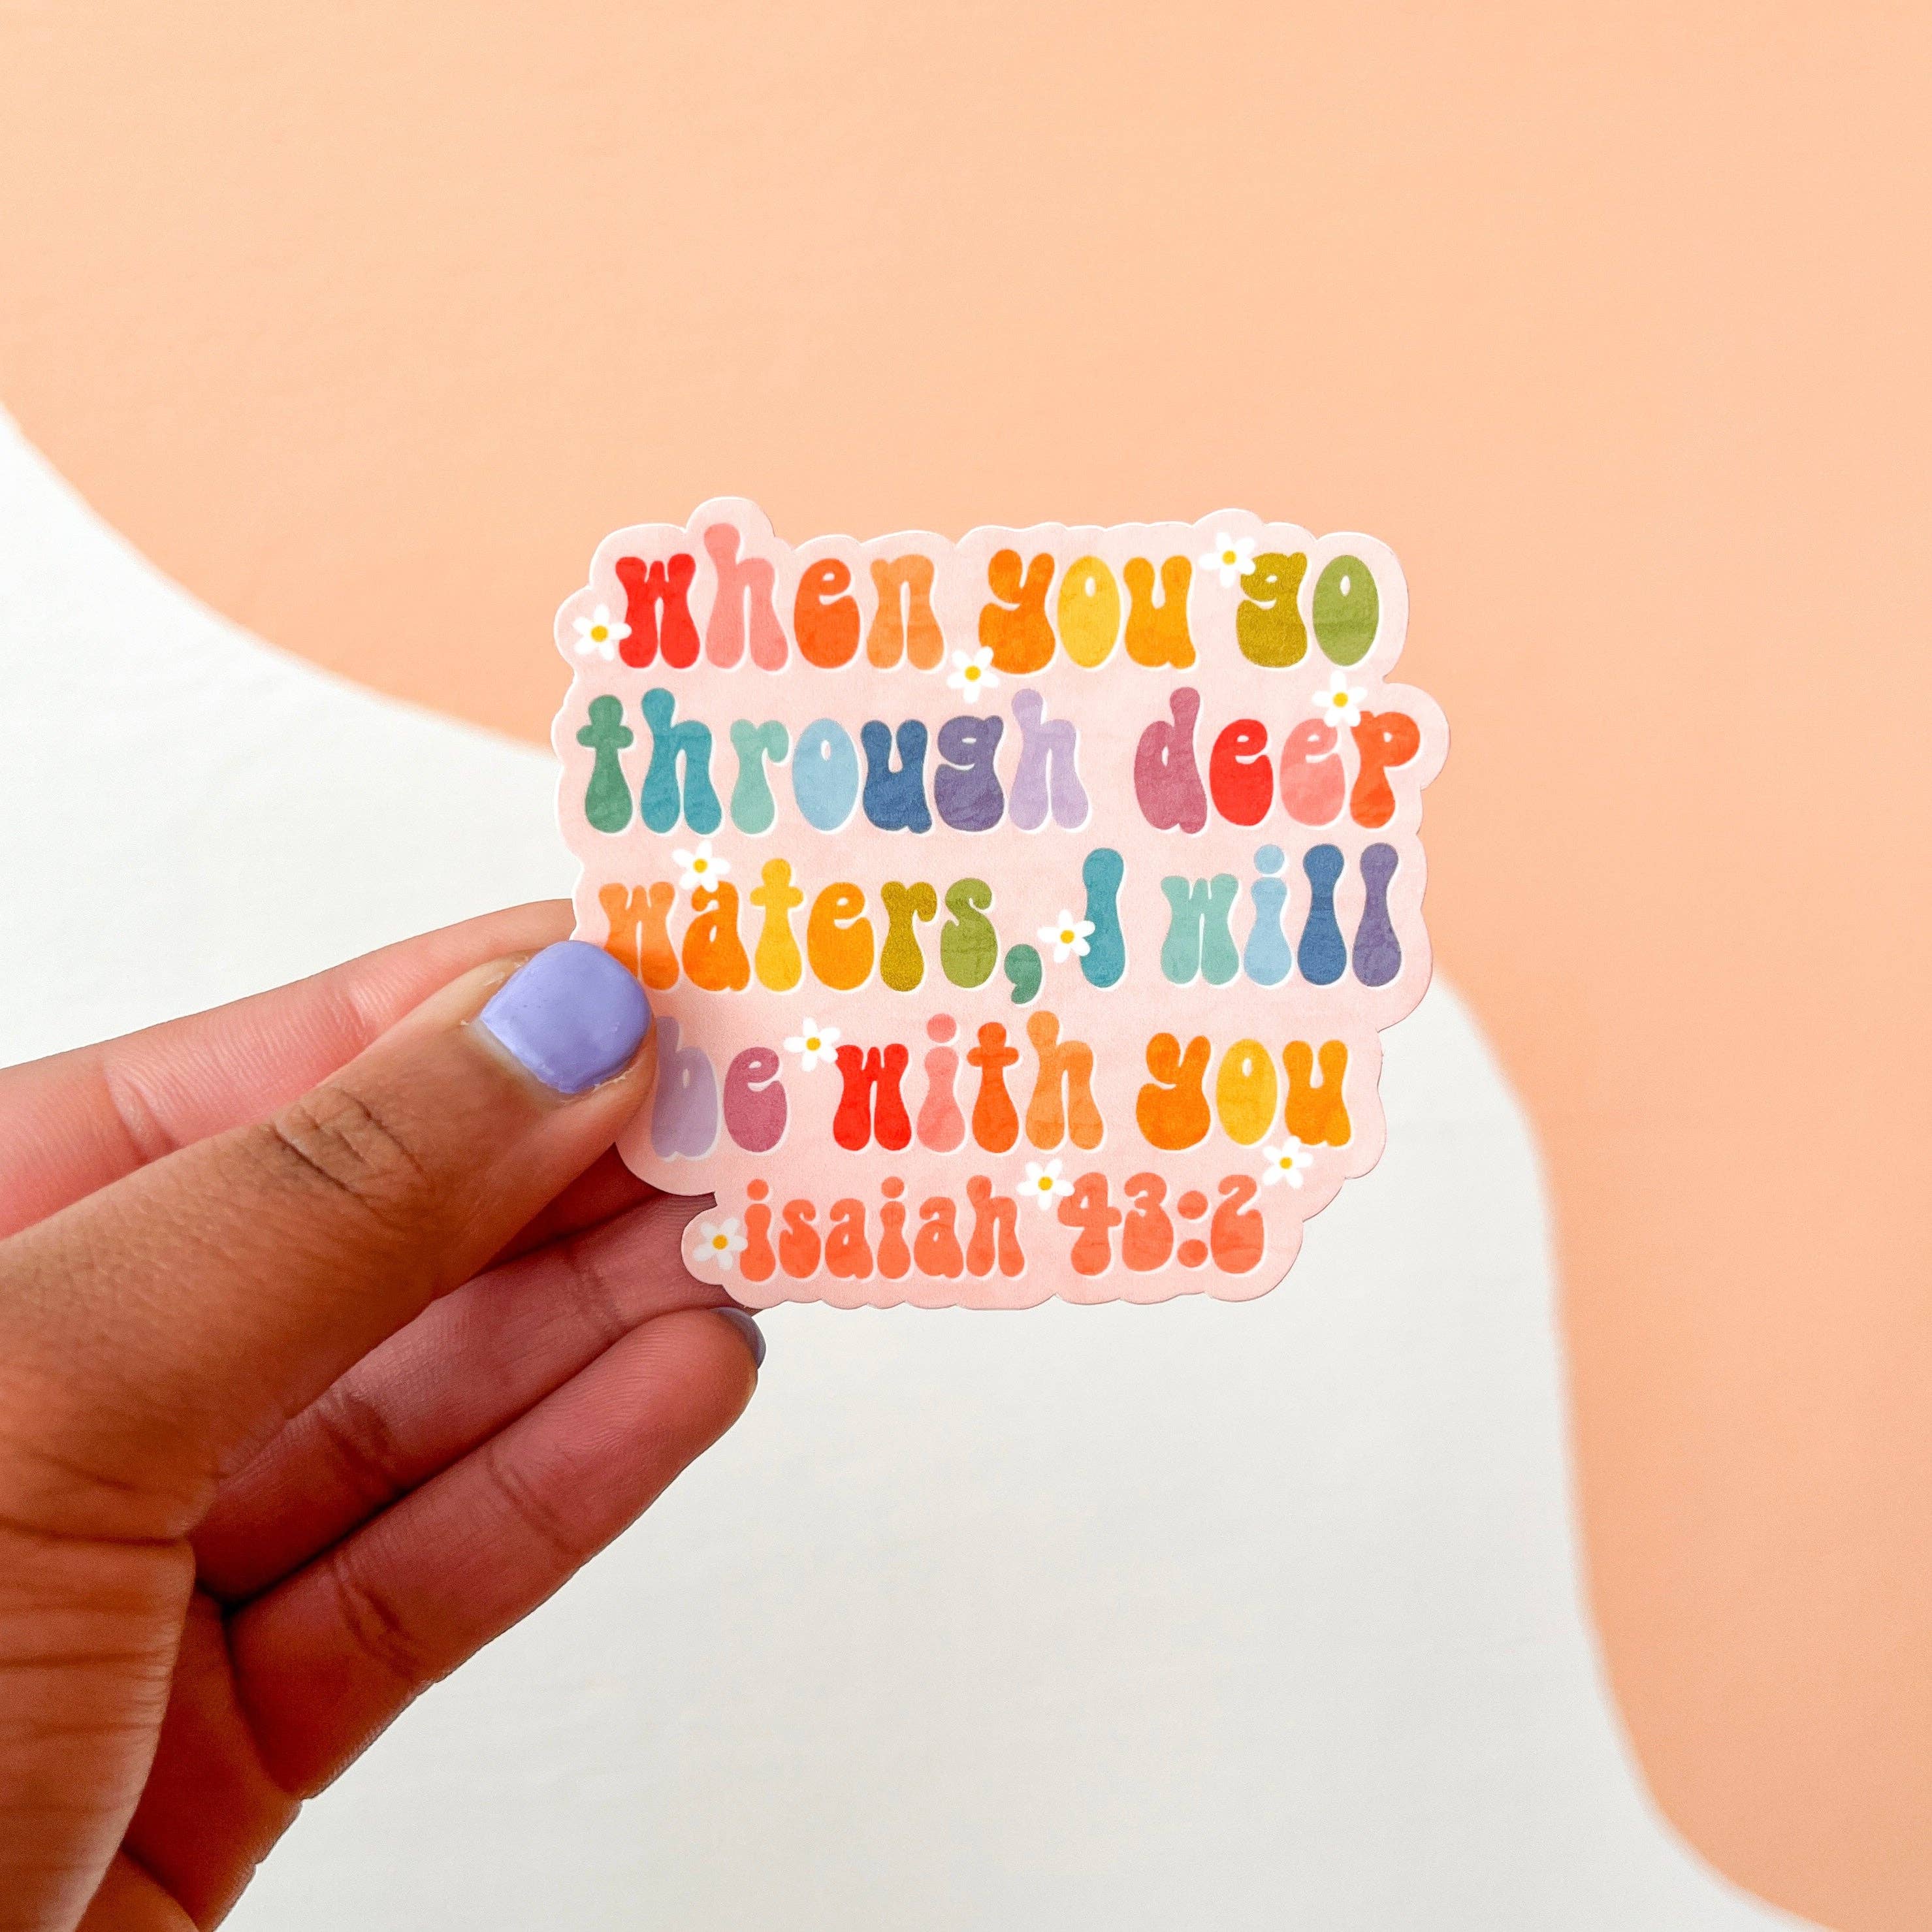 when you go
through deep
waters, I will
be with you
isaiah 43:2